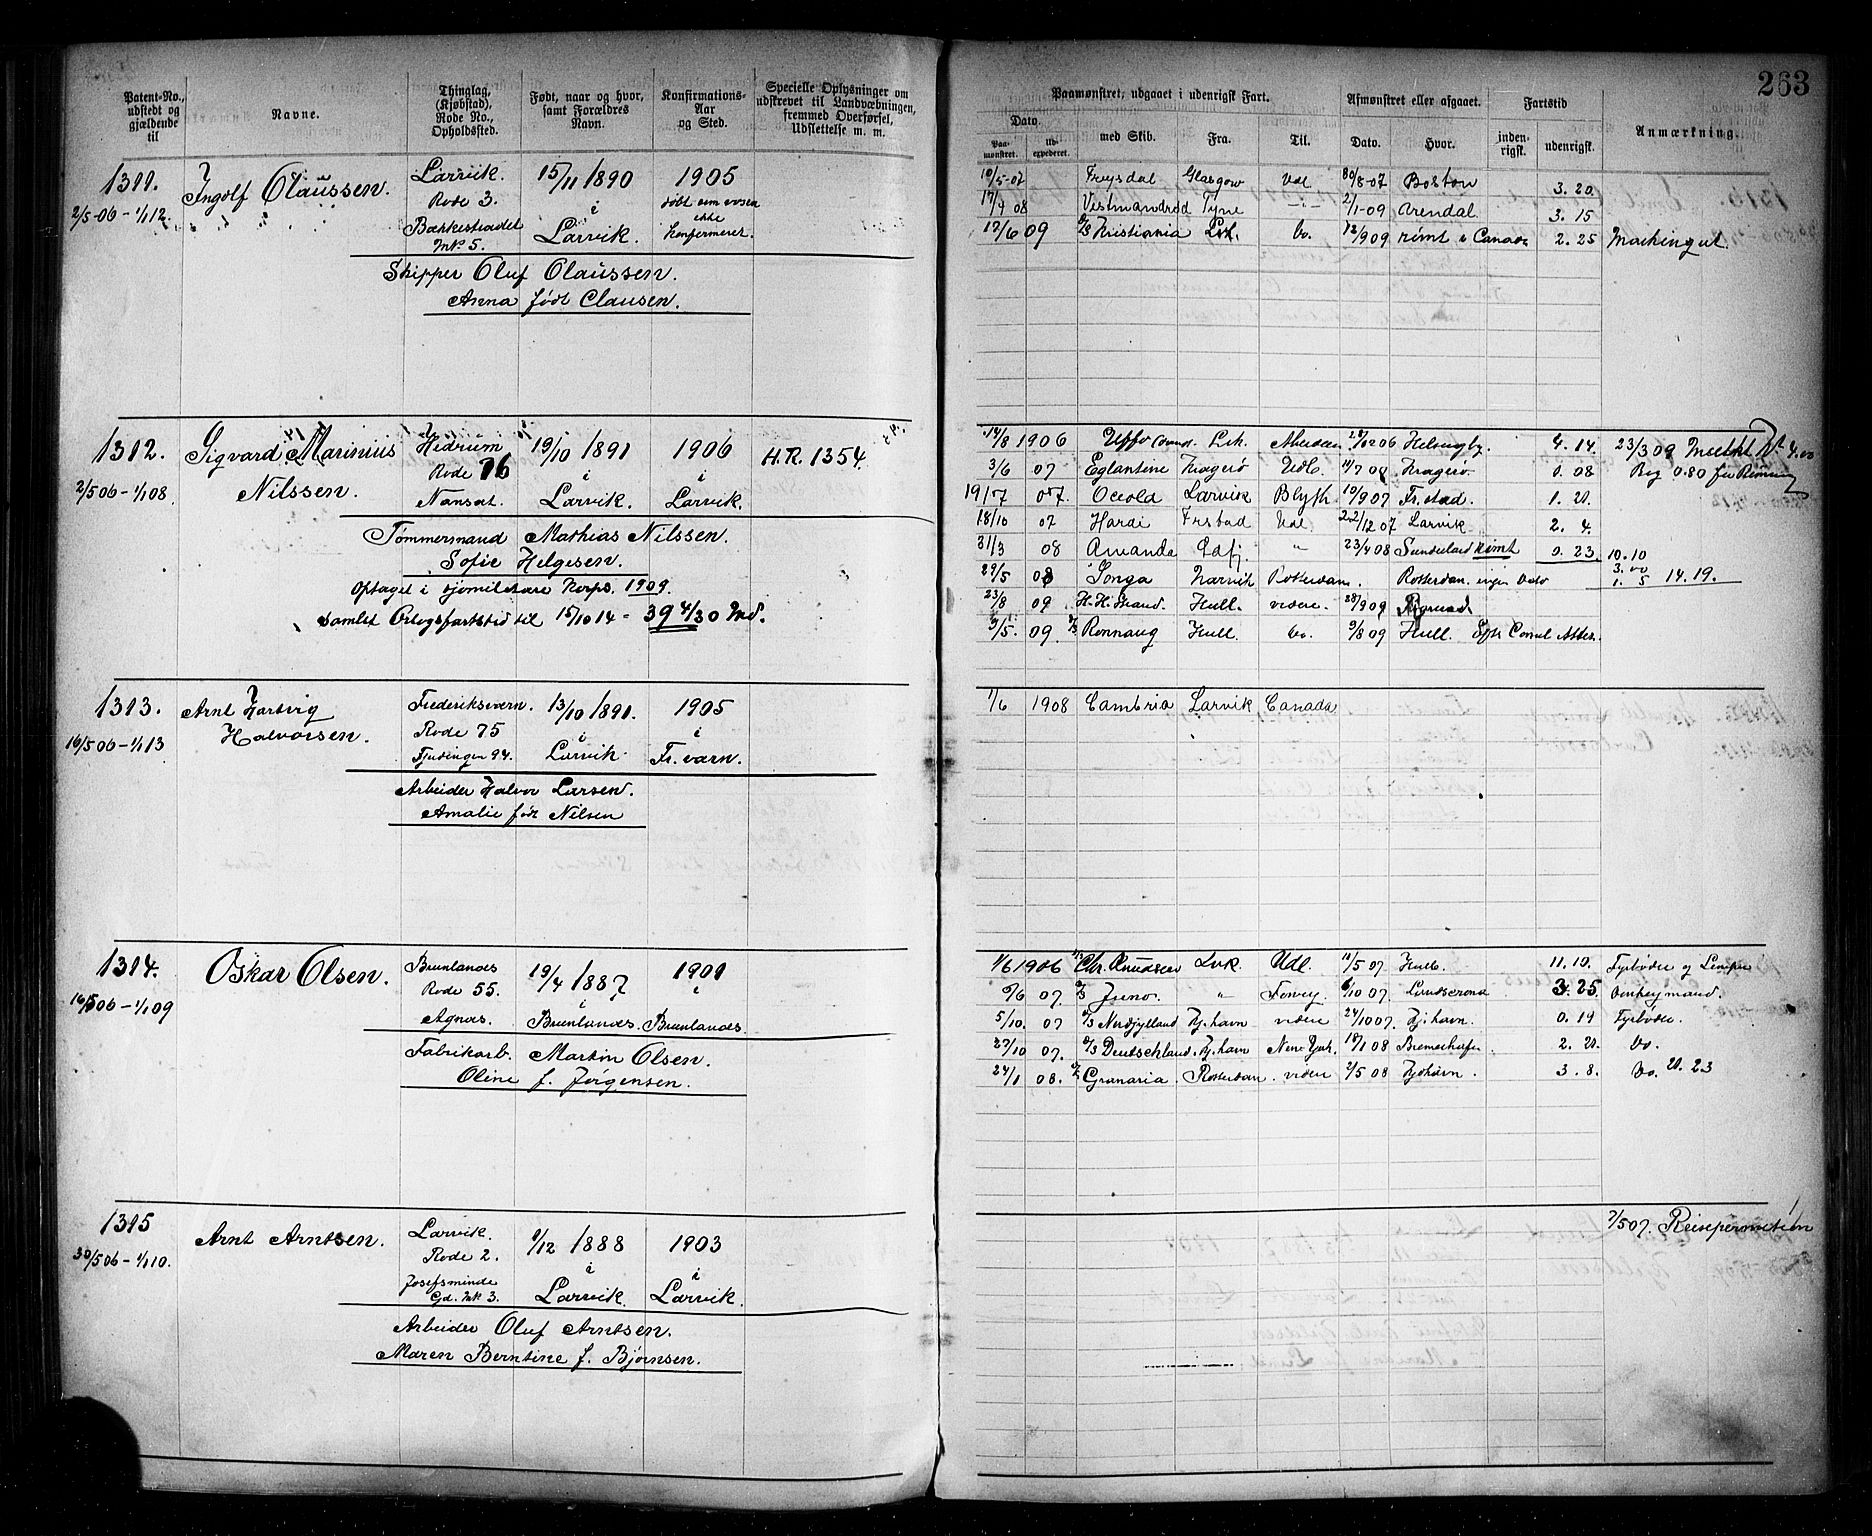 263
Patent-No., udstedt og gjældende til
Navne.
Thinglag, (Kjøbstad), Rode No., Opholdssted.
Født, naar og hvor, samt Forældres Navn.
Konfirmations-Aar og Sted.
Specielle Oplysninger om udskrevet til Landvæbningen, fremmed Overførsel, Udslettelse m. m.
Paamønstret, udgaaet i udenrigsk Fart.
Afmønstret eller afgaaet.
Fartstid
Anmærkning.
Dato.
Paa-mønstret.
Ud-expederet.
med Skib.
Fra.
Til.
Dato.
Hvor.
inden-rigsk.
udenrigsk.
1311. Ingolf Claussen. Larvik. 15/11 1890 1905
2/5-06 - 1/1 12. Rode 3. i døbt men
Bækkestrædet Larvik. ikke
Mk. 5. konfirmeret.
Skipper Oluf Claussen.
Anna født Clausen.
10/5-07 Freysdal Glasgow Udl 30/8-07 Boston 3. 20.
17/9 08 Tyne 2/1-09 Arendal. 3. 15
17/6 09 D/S Kristiania Do. 12/9 09 rømt i Canada 2. 25
1312. Sigvard Marinius Hedrum 19/10 1891 1906 H.R. 1354.
Nilssen. Rode 76 i i
2/5 06 - 1/1 08. Nanset. Larvik. Larvik.
Tømmermand Mathias Nilssen.
Sofie Helgesen.
Optaget i sjømilitære Korps. 1909.
Samlet Orlogsfartstid til 15/10 14 = 39 4/30 Md.
14/8 1906 Uffo Lvk. Aberdeen 12 06 Helsingby. 4. 14. 23/3 09
3/6 07 Eglantine Kragerø Udl. Kragerø. 0. 08 Bog 0.80 for Rømning
19/7 07. Larvik Blyth 10/9 07 Fr.stad. 1. 21.
18/10 07 Hardi Frstad Udl 22/12 07 Larvik 2. 4.
31/3 08 Amanda " 23/4 08 Sunderland rømt 0. 23. 10. 10
29/5 08 Songa Narvik Rotterdam. Rotterdam. ingen 3. 00
1. 5 14. 19.
23/8 09 H. H. Hull. videre. 28/9 09
3/5. 09 D/S Ronnaug Hull. Do. 9/8 09 Hull.
1313. Arnt Hartvig Frederiksværn. 13/10 1891. 1905
Halvorsen. Rode 75 i i
16/5 06 - 1/1 13 94. Larvik Fr.værn.
Arbeider Halvor Larsen.
Amalie født Nilsen
1/6 1908 Cambria Larvik Canada
1314. Oskar Olsen. Brunlanes 19/4 1887 1901
16/5 06 - 1/1 09 Rode 55. i i
Agnæs. Brunlanes. Brunlanes.
Fabrikarb. Martin Olsen.
Oline f. Jørgensen.
1/6 1906 D/S Chr. Knudsen Lvk. Udl. 5 07. Hull. 11. 10. Fyrbøder og Lemper
6 07. D/S Juno. " 10 07. Landscrona 3. 25. Donkeymand.
5/10. 07 D/S Nordjylland Kj.havn videre 24/10 07. Kj.havn. 0. 19 Fyrbøder.
27/10 07. D/S Deutschland. Kj.havn New York. 18/1 08 Bremerhafen 2. 21. Do.
24/1 08. Granaria. Rotterdam. videre 2/5 08 Kjøhavn. 3. 8. Do. 21. 23
1315 Arnt Arntsen. Larvik. 9/12 1888 1903
30/5 06 - 1/1 10. Rode 2. i i
Josefsminde Larvik. Larvik.
Gd. Mk 3.
Arbeider Oluf Arntsen.
Maren Berntine f. Bjørnsen.
7/5 07. Reisepermission